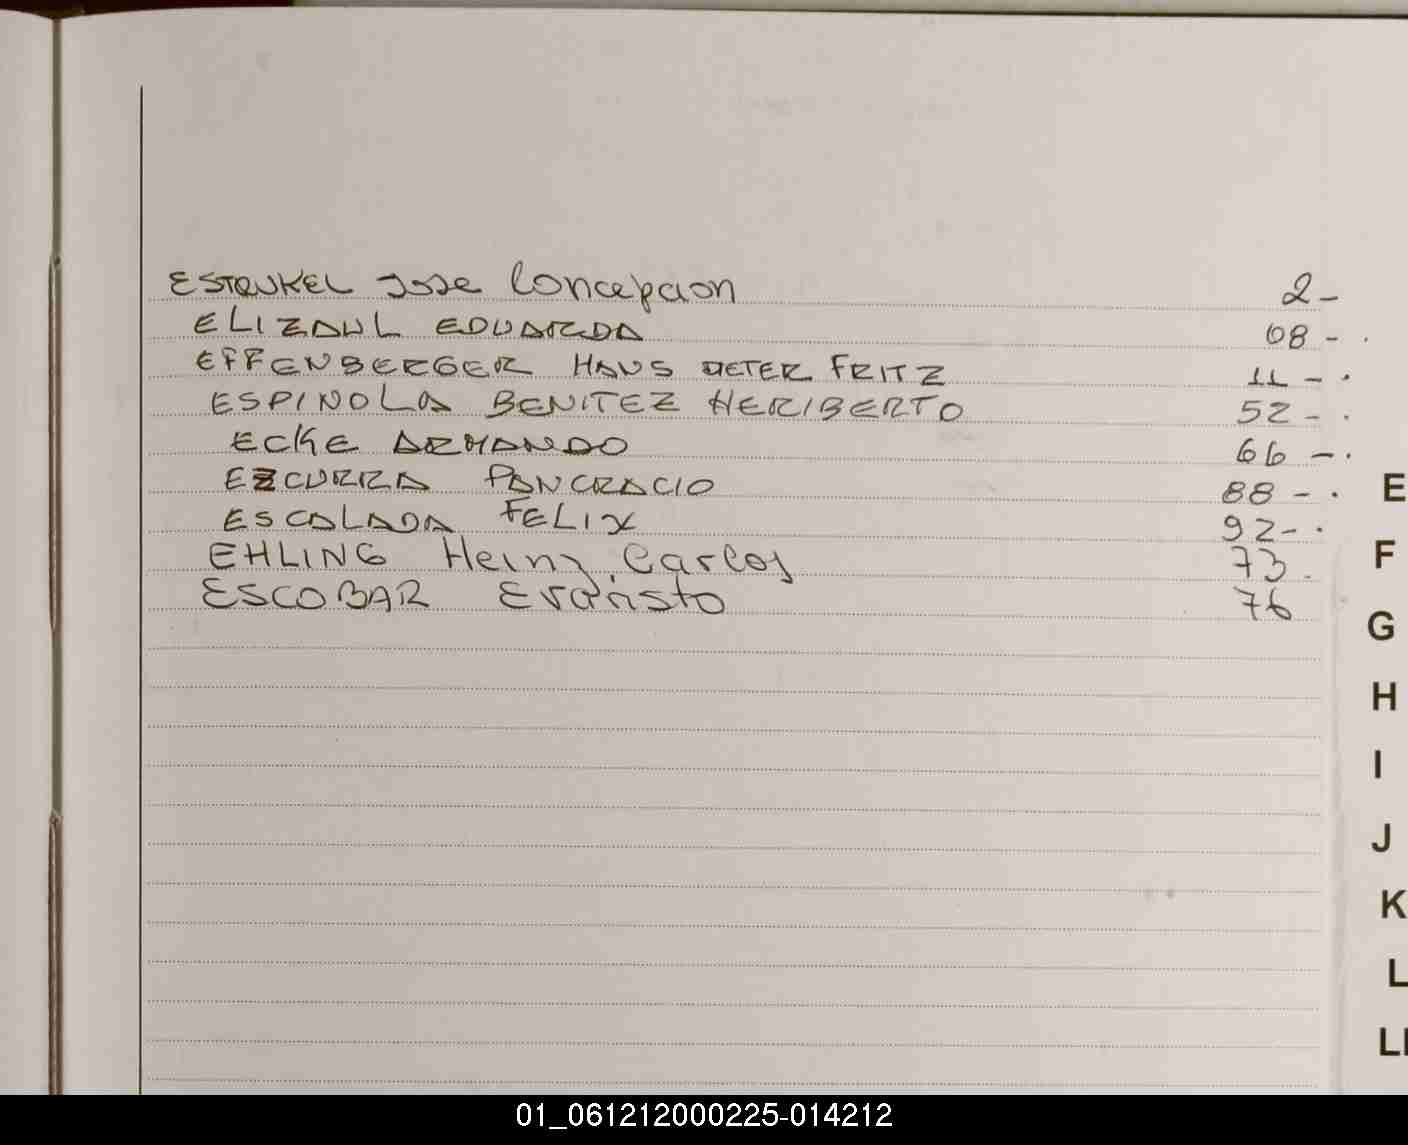 ESTRUKEL Jose Concepcion 2-
ELIZAUL EDUARDA 08 - .
EFFENBERGER HAUS DIETER FRITZ 11 - .
ESPINOLA BENITEZ HERIBERTO 52 - .
ECKE ARMANDO 66 - .
EZCURRA PANCRACIO 88 - .
ESCALADA FELIX 92 - .
EHLING Heinz Carlos 73 .
ESCOBAR Evaristo 76
E
F
G
H
I
J
K
L
Ll
01_061212000225-014212